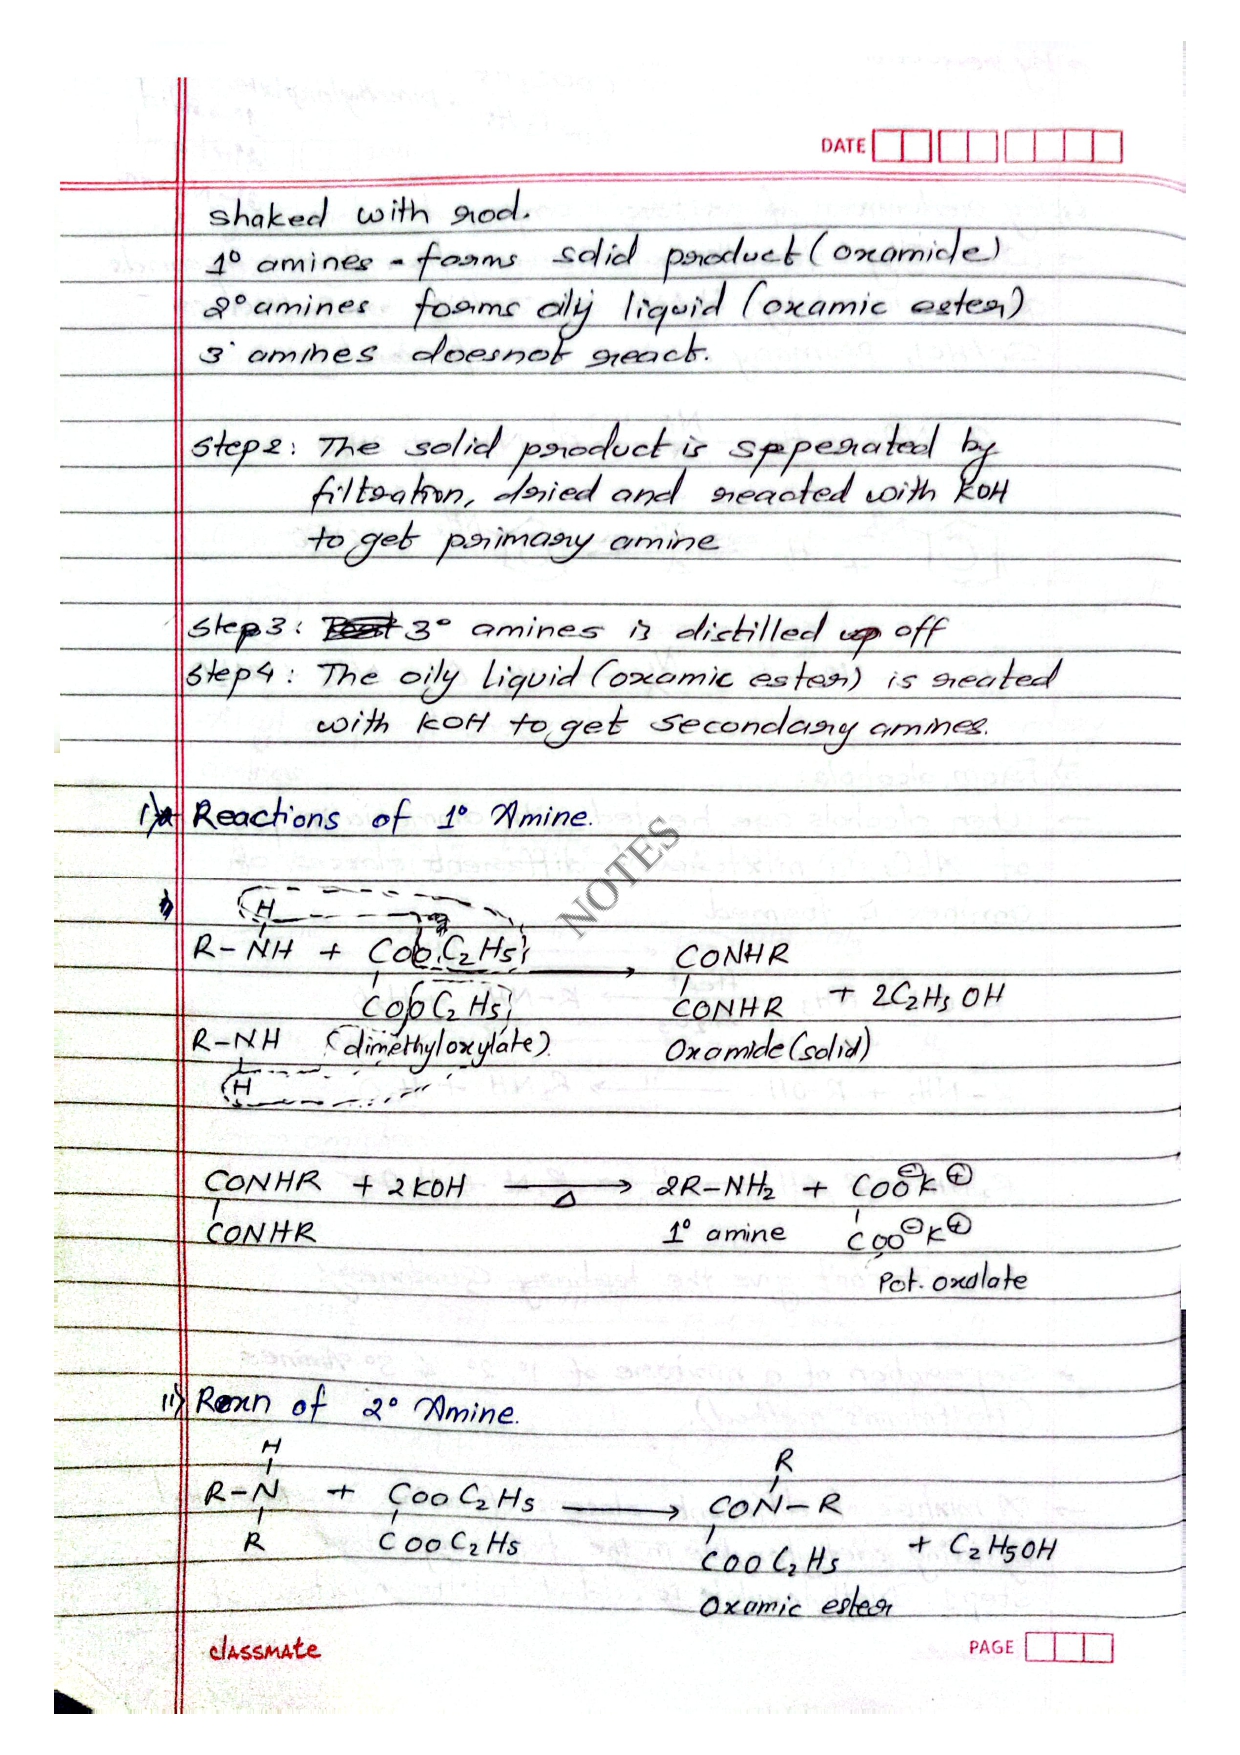 DATE
shaked with rod.
1° amines - forms solid product (oxamide)
2° amines forms oily liquid (oxamic ester)
3° amines doesnot react.
Step2: The solid product is spperated by
filtration, dried and reacted with KOH
to get primary amine
Step3: 3° amines is distilled up off
Step4: The oily liquid (oxamic ester) is reated
with KOH to get secondary amines.
i) Reactions of 1° Amine.
NOTES
H
R-NH + COOC2H5 → CONHR
COOC2H5 CONHR + 2C2H5OH
R-NH (dimethyloxylate). Oxamide (solid)
H
CONHR + 2KOH →Δ 2R-NH2 + COO⊖K⊕
CONHR 1° amine COO⊖K⊕
Pot. oxalate
ii) Rexn of 2° Amine.
H R
R-N + COOC2H5 → CON-R
R COOC2H5 COOC2H5 + C2H5OH
Oxamic ester
classmate
PAGE